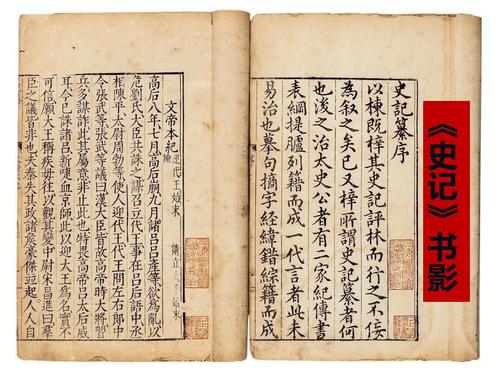 史記纂序
以棟既梓其史記評林而行之不佞
為叙之矣已又梓所謂史記纂者何
也後之治太史公者有二家紀傳書
表綱提臚列籍而成一代言者此未
易治也摹句摘字經緯錯綜籍而成
文帝本紀
代王始末
高后八年七月高后崩九月諸呂呂產等欲為亂以
危劉氏大臣共誅之謀召立代王事在呂后語中丞
相陳平太尉周勃等使人迎代王代王問左右郎中
令張武等張武等議曰漢大臣皆故高帝時大將習
兵多謀詐此其屬意非止此也特畏高帝呂太后威
耳今已誅諸呂新喋血京師此以迎大王為名實不
可信願大王稱疾毋往以觀其變中尉宋昌進曰羣
臣之議皆非也夫秦失其政諸侯豪傑並起人人自
《史记》书影